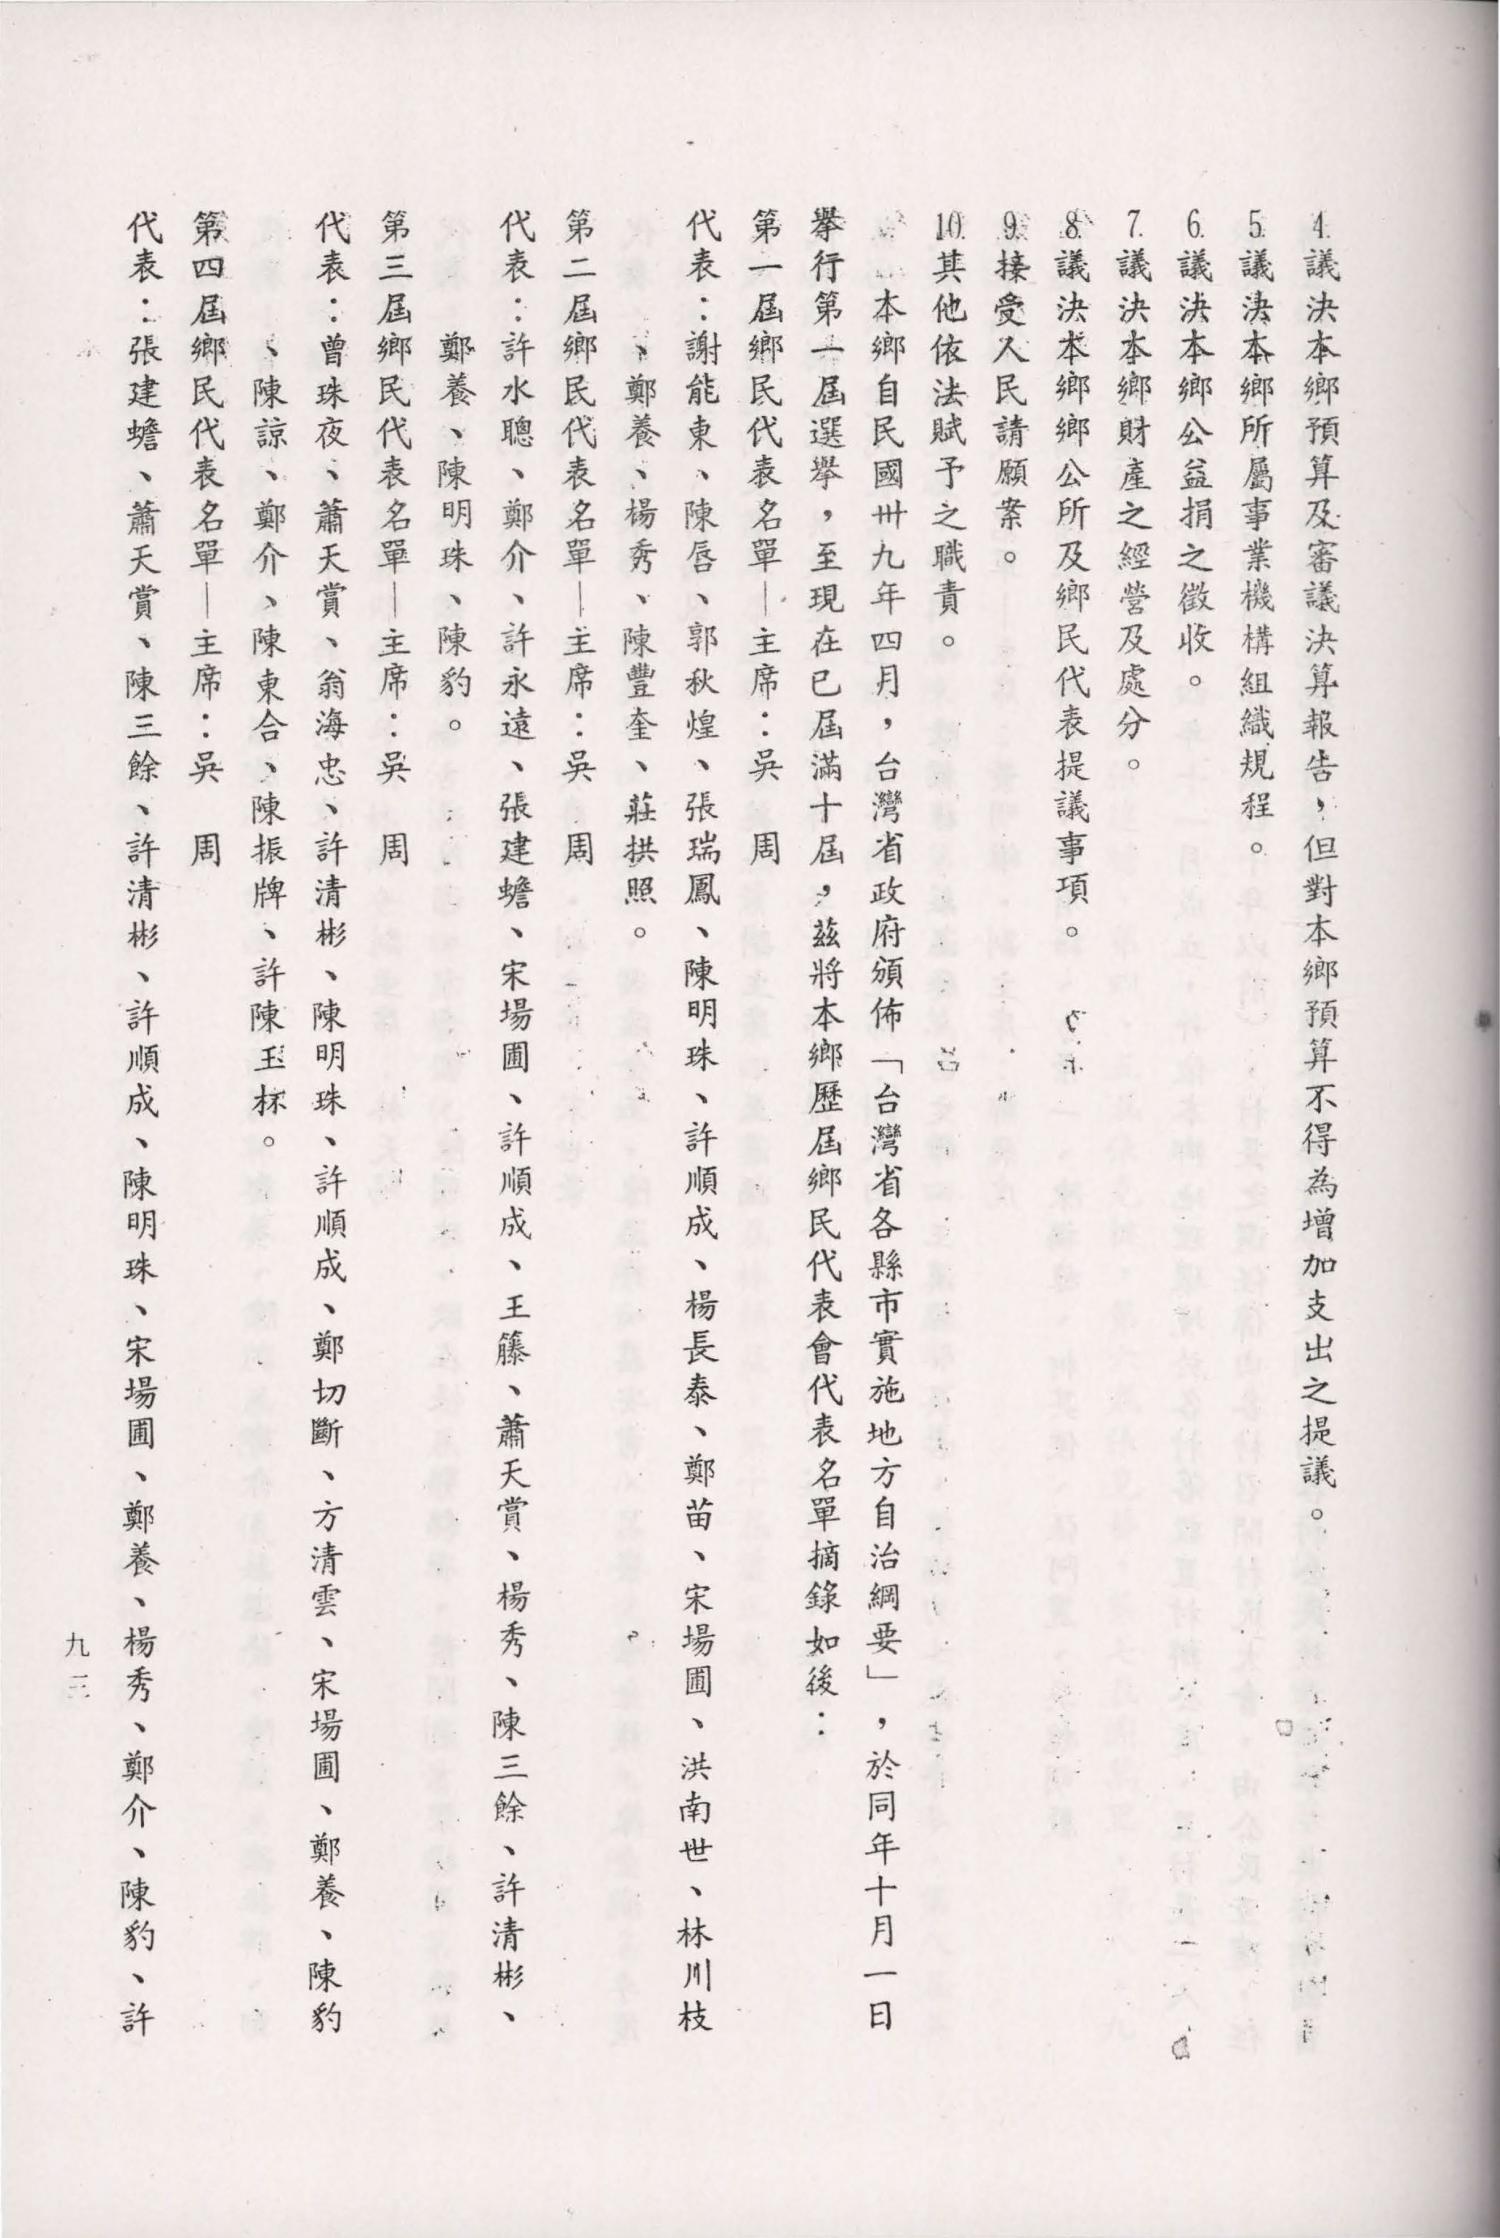 4.議決本鄉預算及審議決算報告，但對本鄉預算不得為增加支出之提議。
5.議決本鄉所屬事業機構組織規程。
6.議決本鄉公益捐之徵收。
7.議決本鄉財產之經營及處分。
8.議決本鄉鄉公所及鄉民代表提議事項。
9.接受人民請願案。
10.其他依法賦予之職責。
本鄉自民國卅九年四月，台灣省政府頒佈「台灣省各縣市實施地方自治綱要」，於同年十月一日
舉行第一屆選舉，至現在已屆滿十屆，茲將本鄉歷屆鄉民代表會代表名單摘錄如後：
第一屆鄉民代表名單—主席：吳　周
代表：謝能東、陳唇、郭秋煌、張瑞鳳、陳明珠、許順成、楊長泰、鄭苗、宋場圃、洪南世、林川枝
、鄭養、楊秀、陳豐奎、莊拱照。
第二屆鄉民代表名單—主席：吳　周
代表：許水聰、鄭介、許永遠、張建蟾、宋場圃、許順成、王籐、蕭天賞、楊秀、陳三餘、許清彬、
鄭養、陳明珠、陳豹。
第三屆鄉民代表名單—主席：吳　周
代表：曾珠夜、蕭天賞、翁海忠、許清彬、陳明珠、許順成、鄭切斷、方清雲、宋場圃、鄭養、陳豹
、陳諒、鄭介、陳東合、陳振牌、許陳玉杯。
第四屆鄉民代表名單—主席：吳　周
代表：張建蟾、蕭天賞、陳三餘、許清彬、許順成、陳明珠、宋場圃、鄭養、楊秀、鄭介、陳豹、許
九三